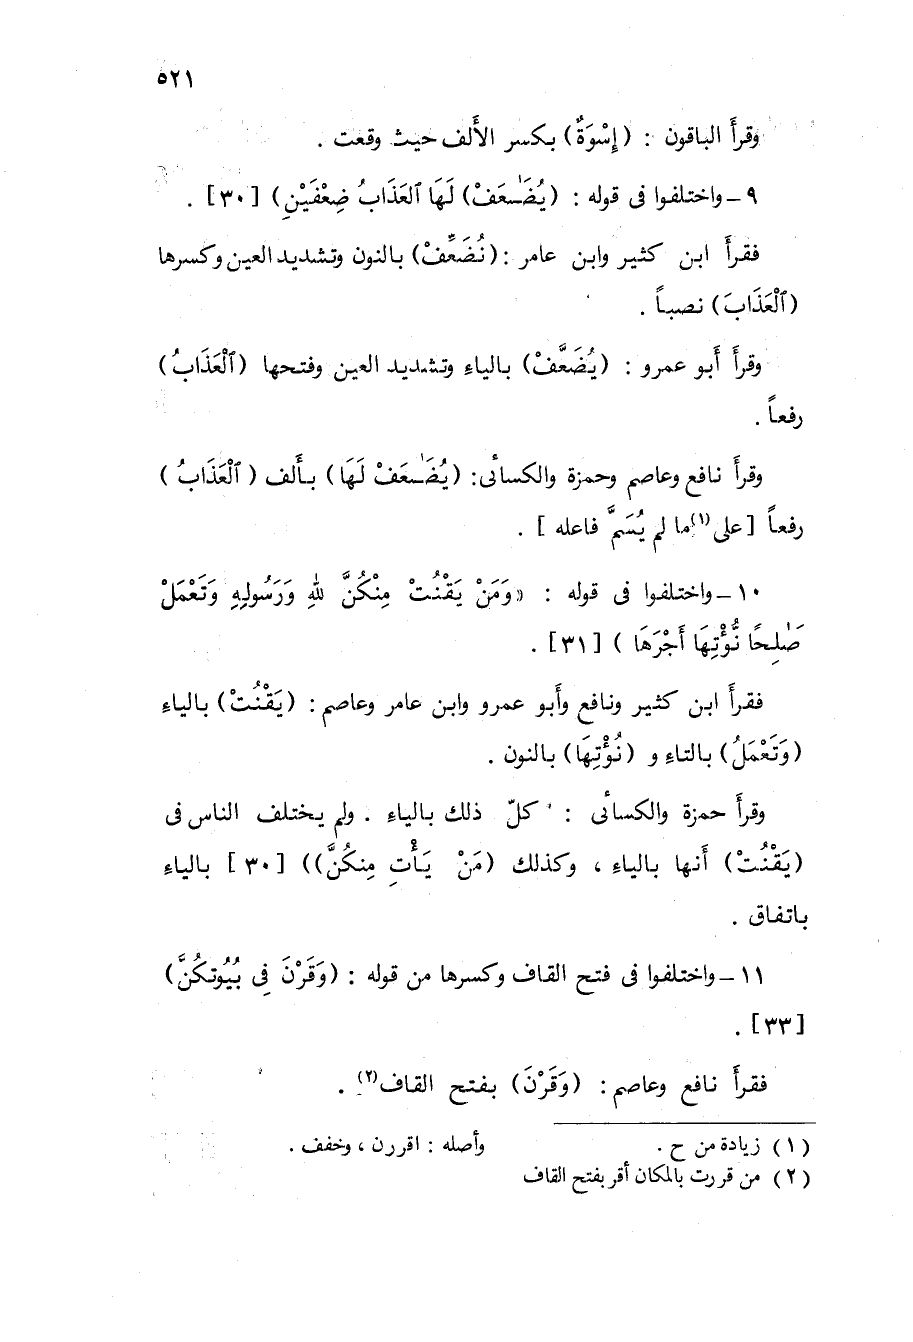 ٥٢١
وقرأ الباقون : (إِسْوَةٌ) بكسر الأَلف حيث وقعت .
٩ ـ واختلفوا فى قوله : (يُضَـٰعَفْ) لَهَا ٱلعَذَابُ ضِعْفَيْنِ) [٣٠] .
فقرأَ ابن كثير وابن عامر : (نُضَعِّفْ) بالنون وتشديد العين وكسرها
(ٱلْعَذَابَ) نصباً .
وقرأَ أَبو عمرو : (يُضَعَّفْ) بالياء وتشديد العين وفتحها (ٱلْعَذَابُ)
رفعاً .
وقرأَ نافع وعاصم وحمزة والكسائى: (يُضَـٰعَفْ لَهَا) بأَلف (ٱلْعَذَابُ)
رفعاً [على(١) ما لم يُسَمَّ فاعله ] .
١٠ ـ واختلفوا فى قوله : «وَمَنْ يَقْنُتْ مِنْكُنَّ لِلّٰهِ وَرَسُولِهِ وَتَعْمَلْ
صَـٰلِحًا نُّؤْتِهَا أَجْرَهَا ) [٣١] .
فقرأَ ابن كثير ونافع وأَبو عمرو وابن عامر وعاصم : (يَقْنُتْ) بالياء
(وَتَعْمَلُ) بالتاء و (نُؤْتِهَا) بالنون .
وقرأَ حمزة والكسائى : كلّ ذلك بالياء . ولم يختلف الناس فى
(يَقْنُتْ) أَنها بالياء ، وكذلك (مَنْ يَأْتِ مِنكُنَّ)) [٣٠] بالياء
باتفاق .
١١ ـ واختلفوا فى فتح القاف وكسرها من قوله : (وَقَرْنَ فِى بُيُوتكُنَّ)
[٣٣] .
فقرأَ نافع وعاصم : (وَقَرْنَ) بفتح القاف(٢) .
(١) زيادة من ح .
(٢) من قررت بالمكان أقر بفتح القاف
وأصله : اقررن ، وخفف .